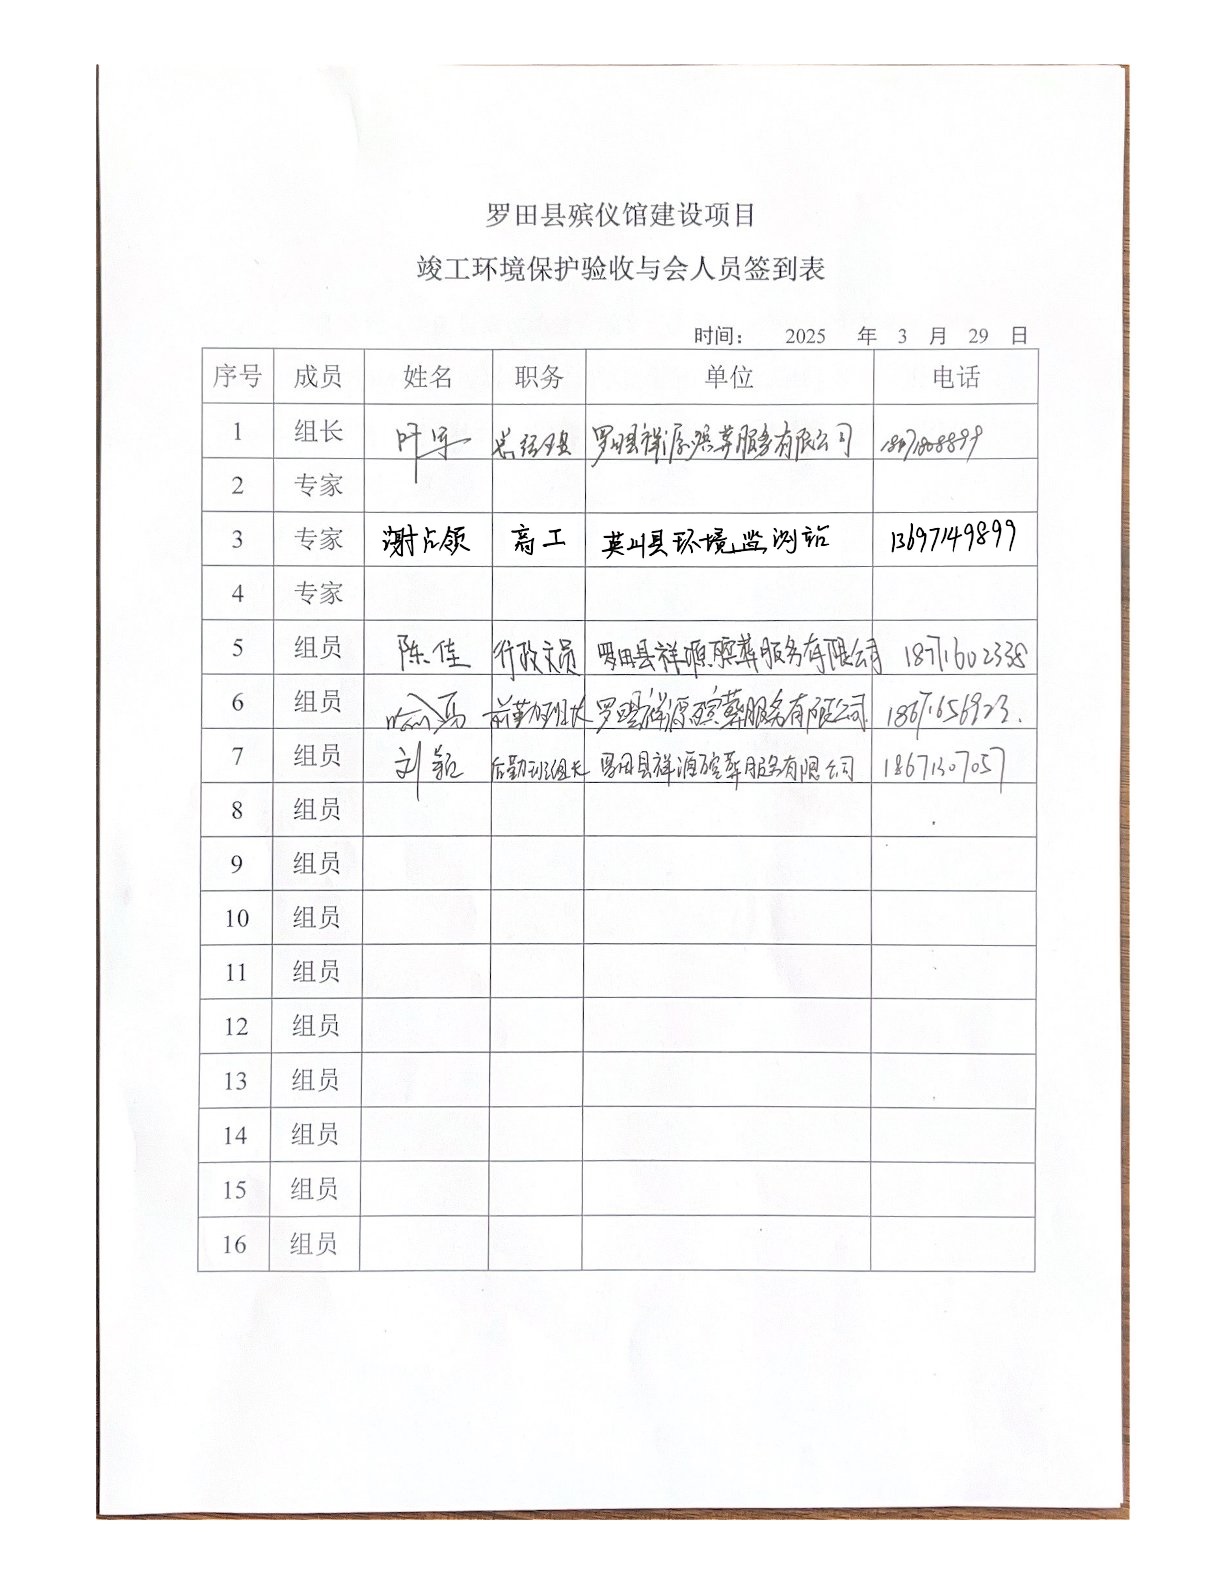 罗田县殡仪馆建设项目
竣工环境保护验收与会人员签到表
时间： 2025 年 3 月 29 日
序号 成员 姓名 职务 单位 电话
1 组长 叶军 总经理 罗田县祥源殡葬服务有限公司
2 专家
3 专家 谢占领 高工 英山县环境监测站 13697149899
4 专家
5 组员 陈佳 行政文员 罗田县祥源殡葬服务有限公司 18771602338
6 组员 前勤班组长 罗田县祥源殡葬服务有限公司 18671656923.
7 组员 刘颖 后勤班组长 罗田县祥源殡葬服务有限公司 18671307057
8 组员
9 组员
10 组员
11 组员
12 组员
13 组员
14 组员
15 组员
16 组员